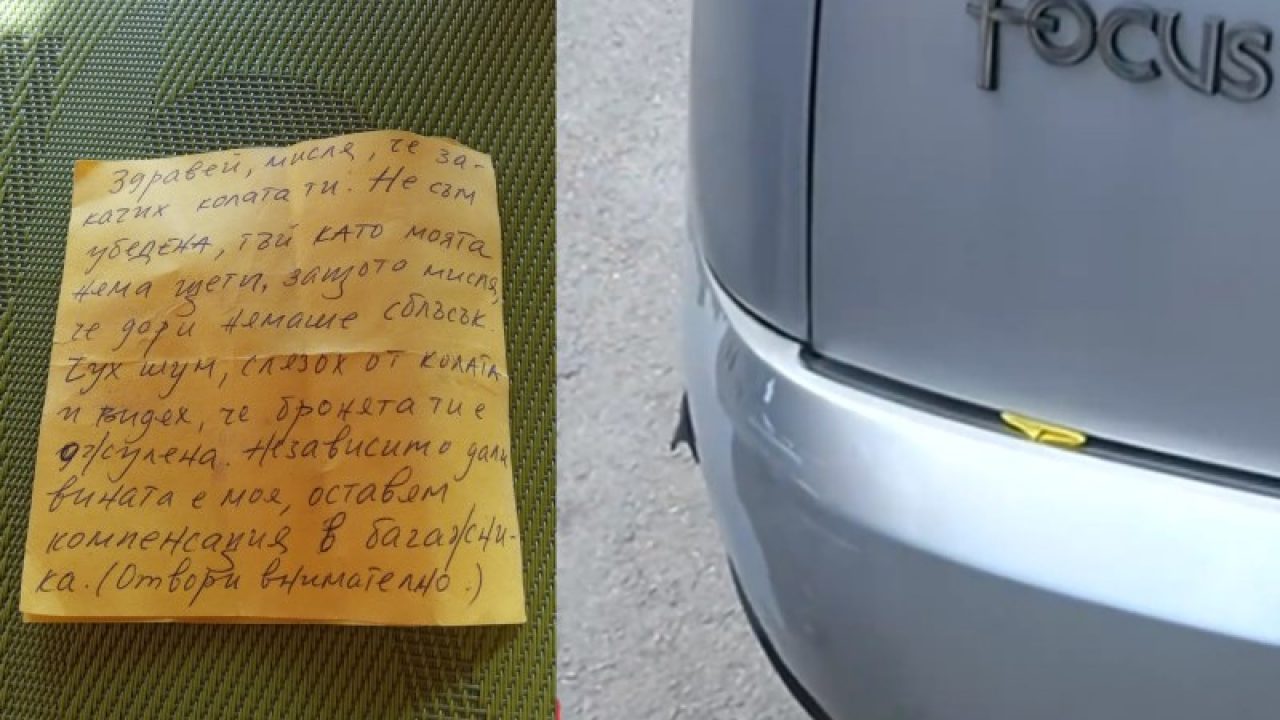 Здравей, мисля, че за-
качих колата ти. Не съм
убедена, тъй като моята
няма щети, защото мисля,
че дори нямаше сблъсък.
Чух шум, слязох от колата
и видях, че бронята ти е
ожулена. Независимо дали
вината е моя, оставям
компенсация в багажни-
ка. (Отвори внимателно.)
FOCUS